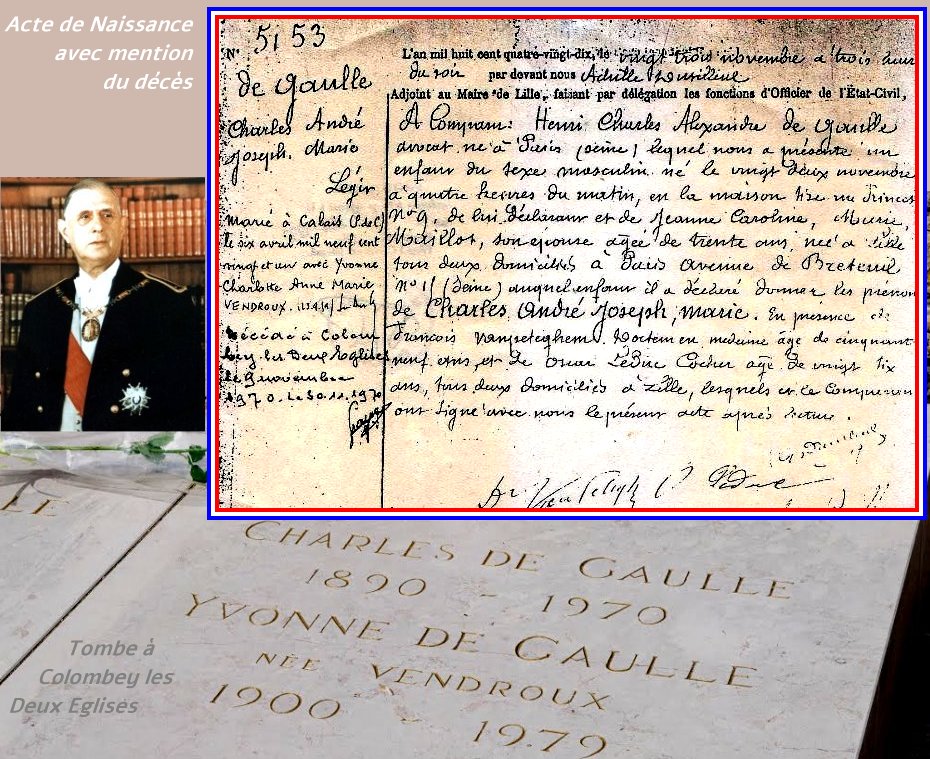 Acte de Naissance
avec mention
du décès
N° 5153
de Gaulle
Charles André
Joseph Marie
Légir
marié à Calais (P.deC)
le six avril mil neuf cent
vingt et un avec Yvonne
Charlotte Anne Marie
VENDROUX.
Décédé à Colom
bey les Deux Eglises
le 9 novembre
1970. Le 30.11.1970
L'an mil huit cent quatre-vingt-dix, le vingt trois novembre à trois heures
du soir par devant nous Achille
Adjoint au Maire de Lille, faisant par délégation les fonctions d'Officier de l'État-Civil,
A Comparu: Henri Charles Alexandre de Gaulle
avocat né à Paris (Seine) lequel nous a présenté un
enfant du sexe masculin né le vingt deux novembre
à quatre heures du matin, en la maison sise rue Princesse
N° 9, de lui déclarant et de Jeanne Caroline, Marie,
Maillot, son épouse âgée de trente ans, née à Lille
tous deux domiciliés à Paris avenue de Breteuil
N° 15 (Seine) auquel enfant il a déclaré donner les prénoms
de Charles, André, Joseph, Marie. En présence de
François Vanpeteghem. Docteur en médecine âgé de cinquante
neuf ans, et de Omar Leduc Cocher âgé de vingt six
ans, tous deux domiciliés à Lille, lesquels et le Comparant
ont signé avec nous le présent acte après lecture.
CHARLES DE GAULLE
1890 - 1970
YVONNE DE GAULLE
NÉE VENDROUX
1900 - 1979
Tombe à
Colombey les
Deux Eglises